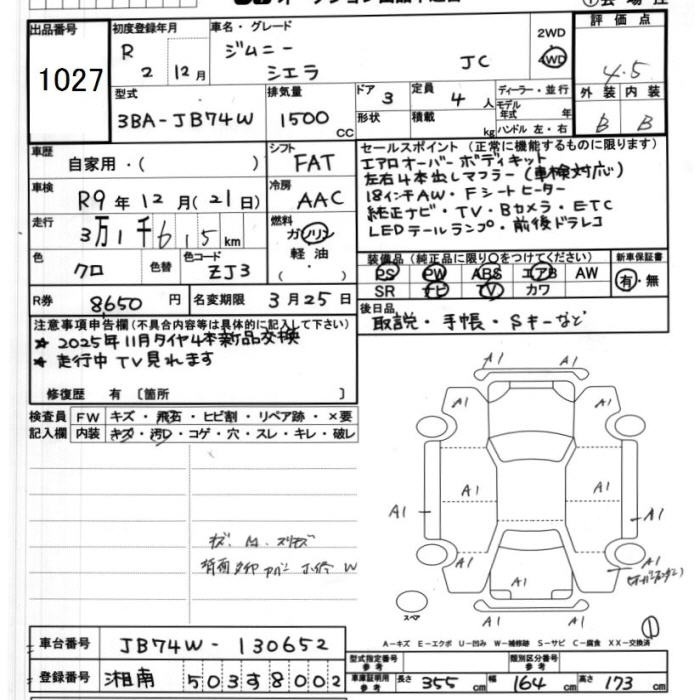 出品番号
1027
初度登録年月
R 2 12月
車名・グレード
ジムニー
シエラ
JC
2WD
4WD
評価点
4.5
外装 内装
B B
型式
3BA-JB74W
排気量
1500 CC
ドア 3
形状
定員 4 人
積載 kg
ディーラー・並行
モデル年式 年
ハンドル 左・右
車歴
自家用・( )
シフト
FAT
車検
R9年12月(21日)
冷房
AAC
走行
3万1千615km
燃料
ガソリン
軽油
( ・ )
色
クロ
色替
色コード
ZJ3
R券 8650円
名変期限 3月25日
セールスポイント(正常に機能するものに限ります)
エアロオーバーボディキット
左右4本出しマフラー(車検対応)
18インチAW・Fシートヒーター
純正ナビ・TV・Bカメラ・ETC
LEDテールランプ・前後ドラレコ
装備品(純正品に限り○をつけてください)
PS PW ABS エアB AW
SR ナビ TV カワ
新車保証書
有・無
後日品
取説・手帳・Sキーなど
注意事項申告欄(不具合内容等は具体的に記入して下さい)
★2025年11月タイヤ4本新品交換
★走行中TV見れます
修復歴 有〔箇所 〕
検査員記入欄
FW キズ・飛石・ヒビ割・リペア跡・×要
内装 キズ・汚レ・コゲ・穴・スレ・キレ・破レ
A1
A1
A1 A1
A1 A1
A1 A1
A1 A1
A1
A1
スペア
①
A−キズ E−エクボ U−凹み W−補修跡 S−サビ C−腐食 XX−交換済
車台番号 JB74W-130652
登録番号 湘南 503す8002
型式指定番号 参考
類別区分番号 参考
車庫証明用 参考
長さ 355cm 幅 164cm 高さ 173cm